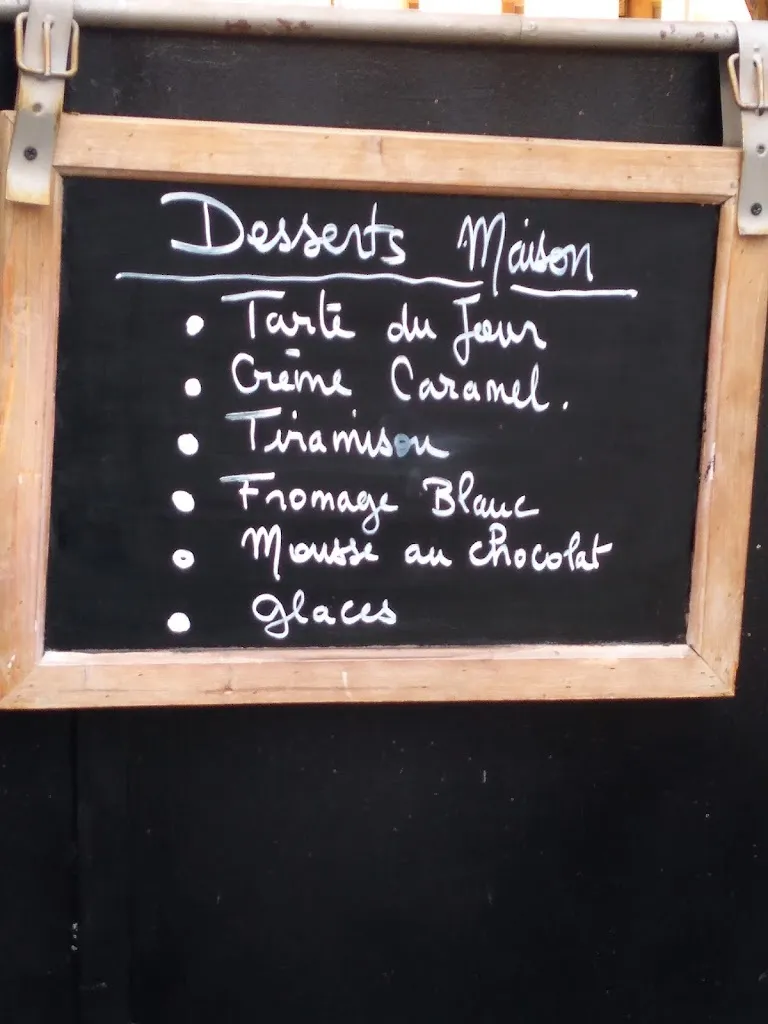 Desserts Maison
• Tarte du Jour
• Crème Caramel.
• Tiramisou
• Fromage Blanc
• Mousse au chocolat
• glaces